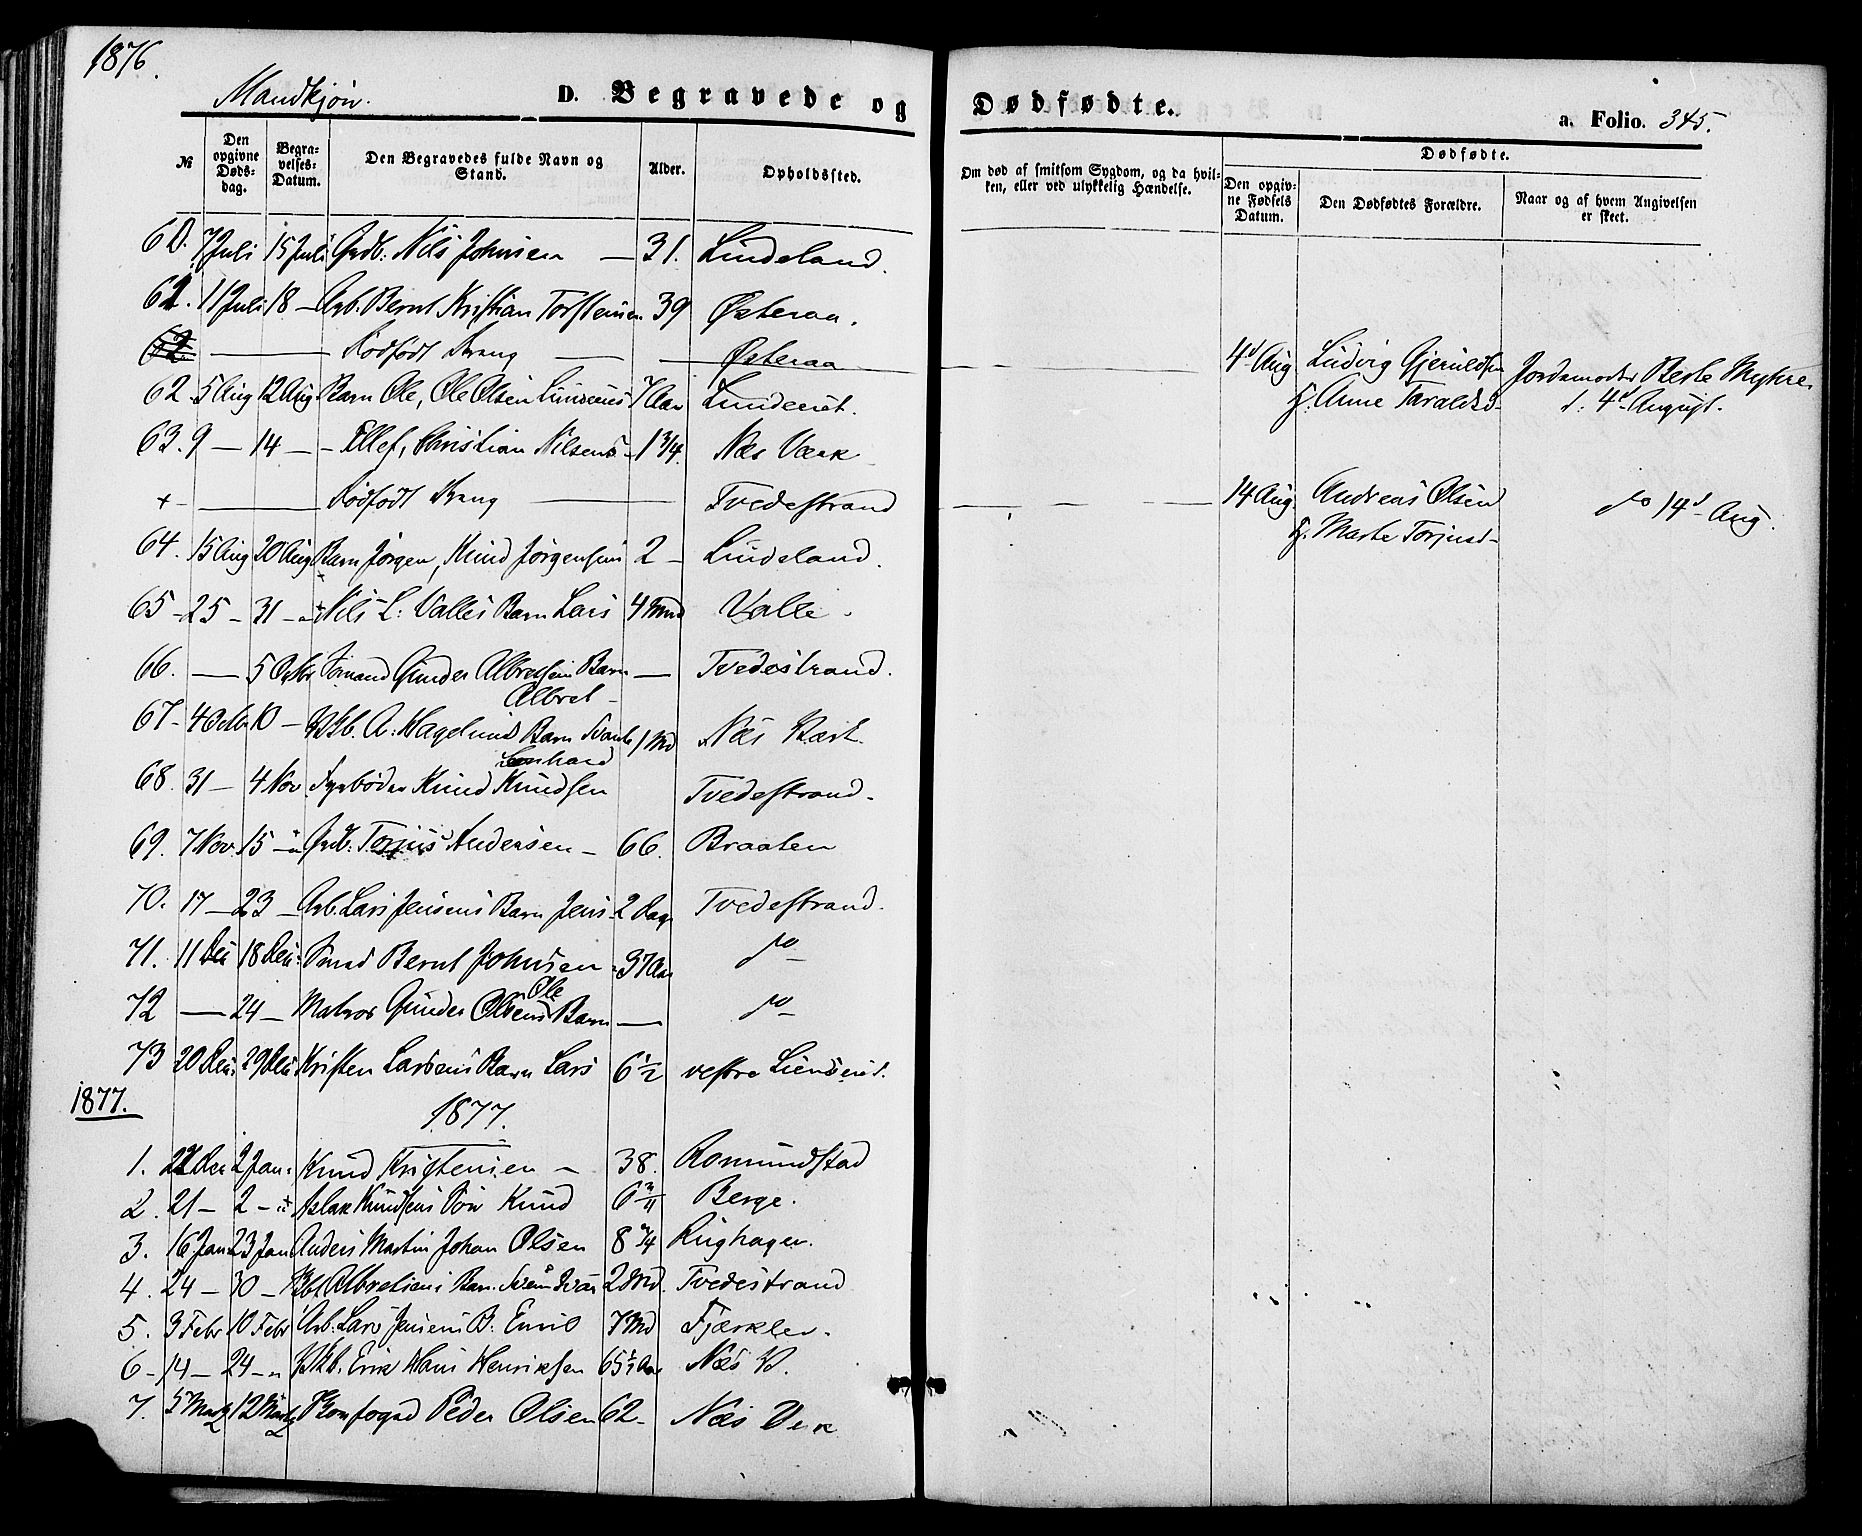 1876.
Mandkjøn.
D. Begravede og Dødfødte.
a. Folio. 345.
№ Den opgivne Døds-dag. Begra-velses-Datum. Den Begravedes fulde Navn og Stand. Alder. Opholdssted. Om død af smitsom Sygdom, og da hvil-ken, eller ved ulykkelig Hændelse. Dødfødte. Den opgiv-ne Fødsels Datum. Den Dødfødtes Forældre. Naar og af hvem Angivelsen er skeet.
60. 7 Juli 15 Juli Grdb. Nils Johnsen — 31. Lindeland.
61. 11 Juli 18 — Arb. Bernt Kristian Torstensen 39 Østeraa.
62. — Dødfødt Dreng — Østeraa — 4d Aug Ludvig Gjeruldsen Jordemoder Berte Myhre
62. 5 Aug 12 Aug Barn Ole, Ole Olsen 7 Aar g. Anne Taraldsd. d: 4d August.
63. 9 — 14 — - Ellef, Christian Nilsens - 1 3/4. Næs Værk
+ - — Dødfødt Dreng — Tvedestrand — 14 Aug. Andreas Olsen do 14d Aug.
g. Marte Torjusd-
64. 15 Aug 20 Aug Barn Jørgen, Knud Jørgensens 2 - Lindeland.
65 - 25 - 31 - Nils L: Valles Barn Lars 4 Mnd Valle.
66. — 5 Oktbr Sømand Gunder Albretsens Barn — Tvedestrand.
Albret -
67 - 4 Octbr 10 - A: Hagelunds Barn 1 Md Næs Værk.
Lenhard
68. 31 - 4 Nov Fyrbøder Knud Knudsen Tvedestrand.
69. 7 Nov. 15 - Grdb. Torjus Andersen - 66. Braaten
70. 17 - 23 - Arb. Lars Jensens Barn Jens - 2 Dage Tvedestrand.
71. 11 Dec 18 Dec: Sømd Bernt Johnsen - 37 Aar do -
Ole
72 — 24 - Matros Gunder Olsens Barn — do -
73 20 Dec. 29 Dec Kristen Larsens Barn Lars 6 1/2 vestre
1877. 1877.
1. 22 Dec 2 Jan. Knud Kristensen - 38. Romundstad
2. 21 - 2 - Aslak Knudsens Søn Knud 6 Berge.
3. 16 Jan 23 Jan Anders Martin Johan Olsen 8 3/4 Rughagen.
4. 24 - 30 - Albretsens Barn 2 Md. Tvedestrand
5. 3 Febr 10 Febr Arb. Lars Jensens B. Emil 7 Md Fjærkleiv.
6 - 14 - 24 - Erik Hans Henriksen 65 1/2 Aar Næs V.
7. 5 Marts 12 Marts Peder Olsen 62 - Næs Verk